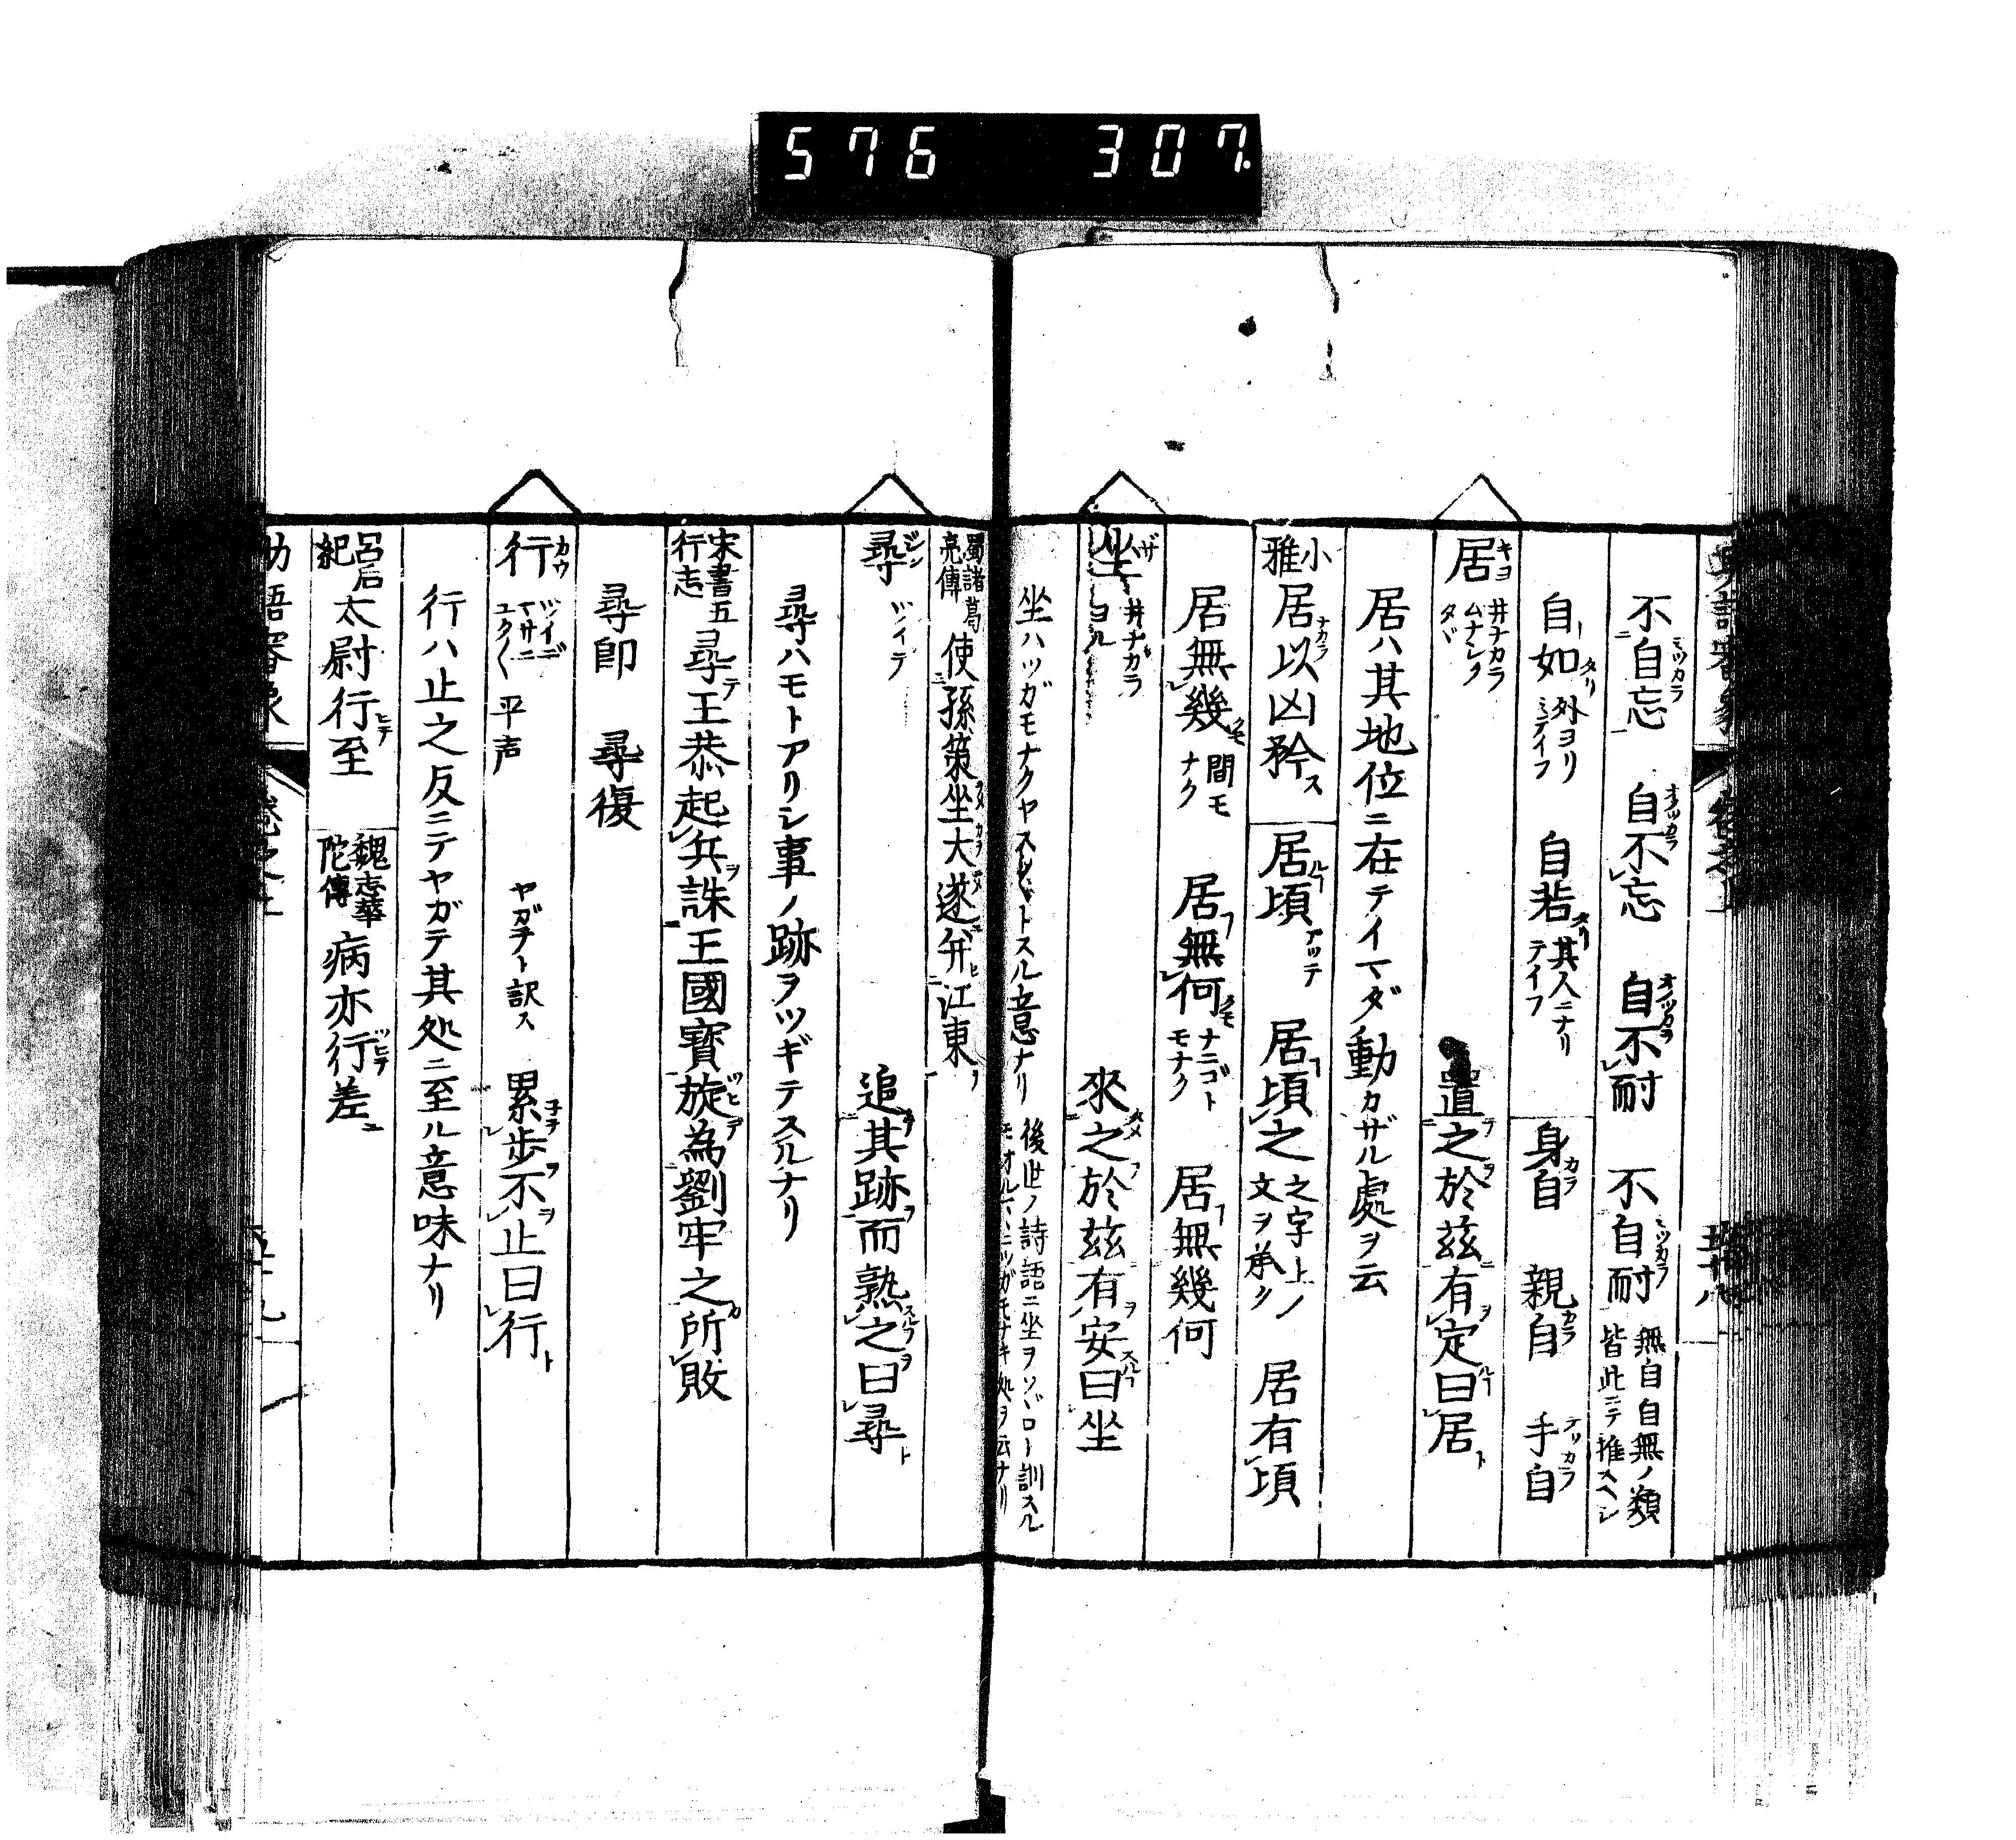 576 307.
不自忘 自不忘 自不耐 不自耐 無自自無ノ類皆此ニテ推スヘシ
自如 外ヨリミテイフ 自若 其人ニナリテイフ 身自 親自 手自
居 キヨ 井ナカラ ムナシク タヾ 置之於茲有定曰居
居ハ其地位ニ在テイマダ動カザル處ヲ云
小雅 居以凶矜 居頃 居頃之 之字上ノ文ヲ承ク 居有頃
居無幾 間モナク 居無何 ナニゴトモナク 居無幾何
坐 ザ 井ナガラ ヨル 來之於茲有安曰坐
坐ハツガモナクヤスヾトスル意ナリ 後世ノ詩語ニ坐ヲソヾロト訓スル
蜀諸葛亮傳 使孫策坐大遂并江東
尋 ジン ツイテ 追其跡而熟之曰尋
尋ハモトアリシ事ノ跡ヲツギテスルナリ
宋書五行志 尋王恭起兵誅王國寶旋為劉牢之所敗
尋即 尋復
行 カウ ツイデ マサニ ユクユク 平声 ヤガテト訳ス 累歩不止曰行
行ハ止之反ニテヤガテ其処ニ至ル意味ナリ
呂后紀 太尉行至 魏志華陀傳 病亦行差